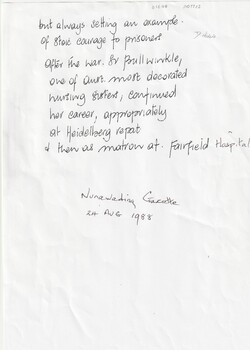 but always setting an example
of stoic courage to prisoners
After the war. Sr
one of Aust. most decorated
nursing sisters, continued
her career, appropriately
at Heidelberg repat
& then as matron at. Fairfield Hospital
Nunawading Gazette
24 AUG 1988